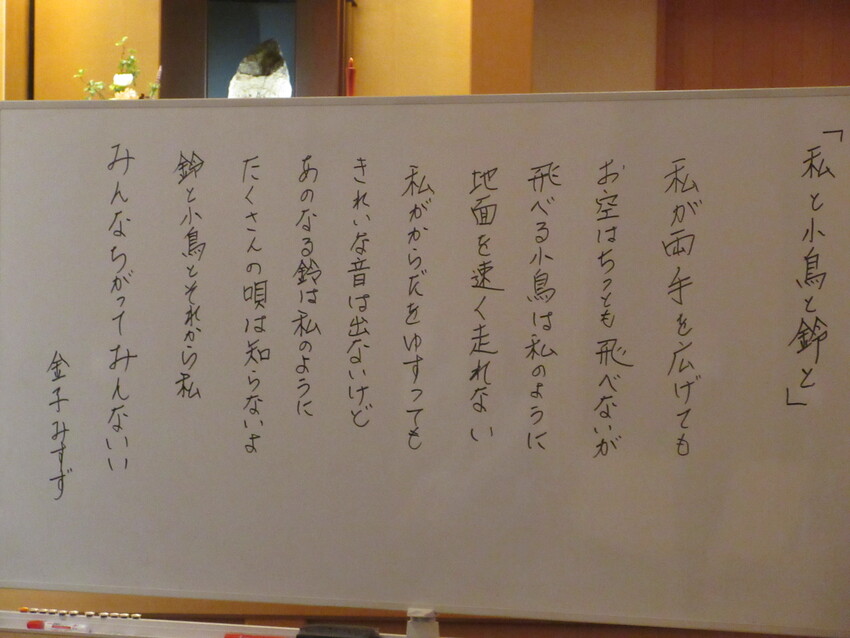 「私と小鳥と鈴と」
私が両手を広げても
お空はちっとも飛べないが
飛べる小鳥は私のように
地面を速く走れない
私がからだをゆすっても
きれいな音は出ないけど
あのなる鈴は私のように
たくさんの唄は知らないよ
鈴と小鳥とそれから私
みんなちがってみんないい
金子みすず